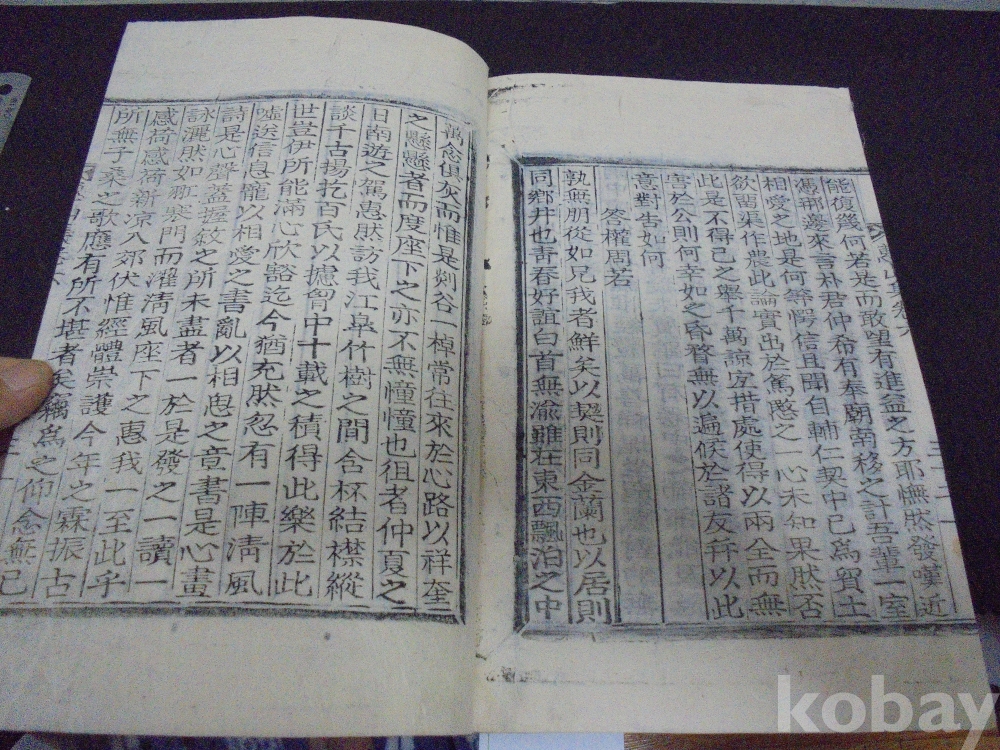 能復幾何若是而敢望有進益之方耶憮然發嘆近
憑鄉邊來言朴君仲希有奉廟葫移之計吾輩一室
相愛之地是何等愕信且聞自輔仁契中已爲買土
欲留渠作農此論實出於篤愍之一心未知果然否
此是不得已之擧千萬諒宜措處使得以兩全而無
害於公則何幸如之昏瞀無以遍候於諸友幷以此
意對告如何
答權周若
孰無朋從如兄我者鮮矣以契則同金蘭也以居則
同鄉井也靑春好誼白首無渝雖在東西飄泊之中
萬念俱灰而惟是剡谷一棹常往來於心路以祥奎
之懸懸者而度座下之亦不無憧憧也徂者仲夏之
日南遊之駕惠然訪我江皐竹樹之間含杯結襟縱
談千古揚扢百氏以攄胷中十載之積得此樂於此
世豈伊所能滿心欣豁迄今猶充然忽有一陣淸風
噓送信息寵以相愛之書亂以相思之章書是心畫
詩是心聲蓋握敍之所未盡者一於是發之一讀一
詠灑然如寒門而濯淸風座下之惠我一至此乎
感荷感荷新凉入郊伏惟經體崇護今年之霖振古
所無子桑之歌應有所不堪者矣竊爲之仰念無已
kobay